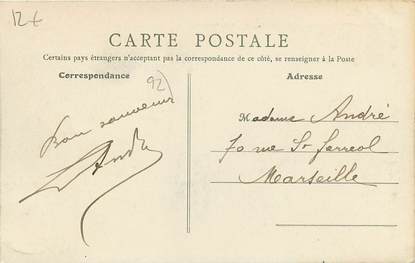 12€
CARTE POSTALE
Certains pays étrangers n'acceptant pas la correspondance de ce côté, se renseigner à la Poste
Correspondance
92)
Adresse
Bon souvenir
André
Madame André
70 rue St Ferreol
Marseille